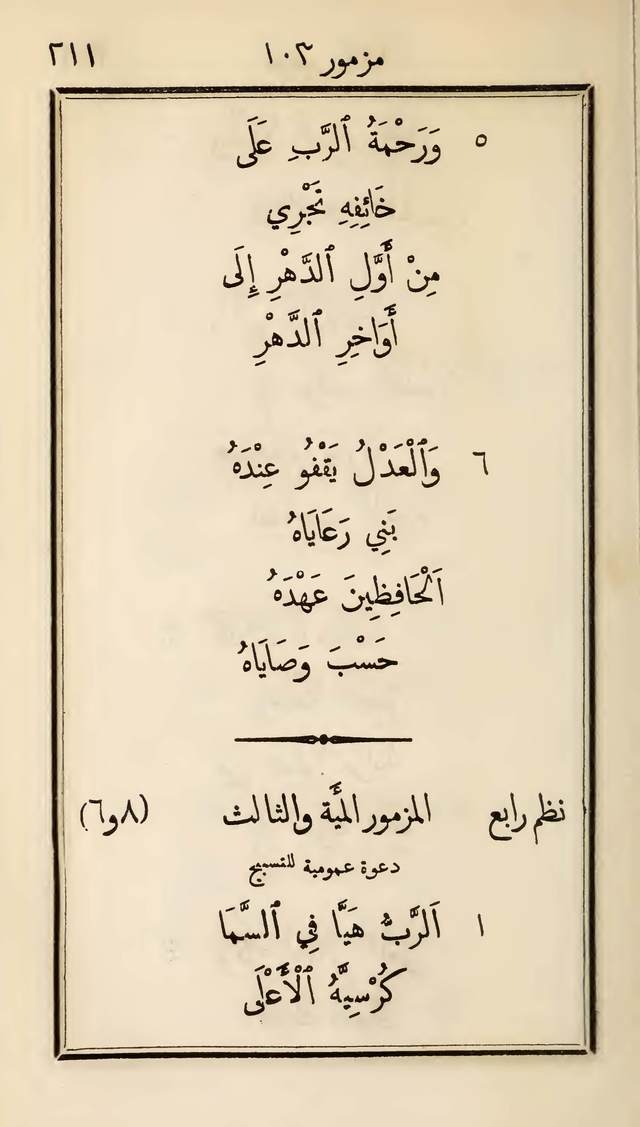 مزمور ١٠٣ ٢١١
٥ وَرَحْمَةُ ٱلرَّبِ عَلَى
خَائِفِهِ تَجْرِي
مِنْ أَوَّلِ ٱلدَّهْرِ إِلَى
أَوَاخِرِ ٱلدَّهْرِ
٦ وَٱلْعَدْلُ يَقْفُو عِنْدَهُ
بَنِي رَعَايَاهُ
اَلْحَافِظِينَ عَهْدَهُ
حَسْبَ وَصَايَاهُ
نظم رابع المزمور الميَّة والثالث (٨ و٦)
دعوة عمومية للتسبيح
١ اَلرَّبُّ هَيَّا فِي ٱلسَّمَا
كُرْسِيَّهُ ٱلْأَعْلَى